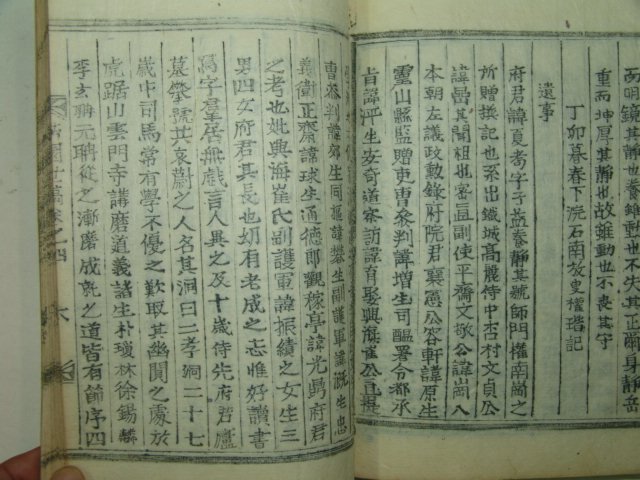 而明鏡其靜也雖動也不失其正爾身靜岳
重而坤厚其靜也故雖動也不喪其守
丁卯暮春下浣石南放皇權瑎記
遺事
府君諱夏耇字子益養靜其號師門權南岡之
所贈揆記也系出鐵城高麗侍中杏村文貞公
諱嵒其間祖也密直副使平齋文敬公諱岡入
本朝左議政勳錄府院君襄憲公容軒諱原生
靈山縣監贈吏曹叅判諱增生司醞署令都承
旨諱平生安奇道察訪諱育娶興旗崔公
曹叅判諱郊生同
義衛正齋諱球生通德郎觀稼亭諱光鼎府君
之考也妣興海崔氏副護軍諱振績之女生三
男四女府君其長也幼有老成之志惟好讀書
寫字羣居無戱言人異之及十歲侍先府君廬
墓塋號其哀尉之人名其洞曰二孝洞二十七
歲中司馬常有學不優之歎取其幽閒之處放
虎踞山雲門寺講磨道義諸生朴瓊林徐錫麟
李玄聃元聃從之漸磨成就之道皆有節序四
世稿卷之四
六